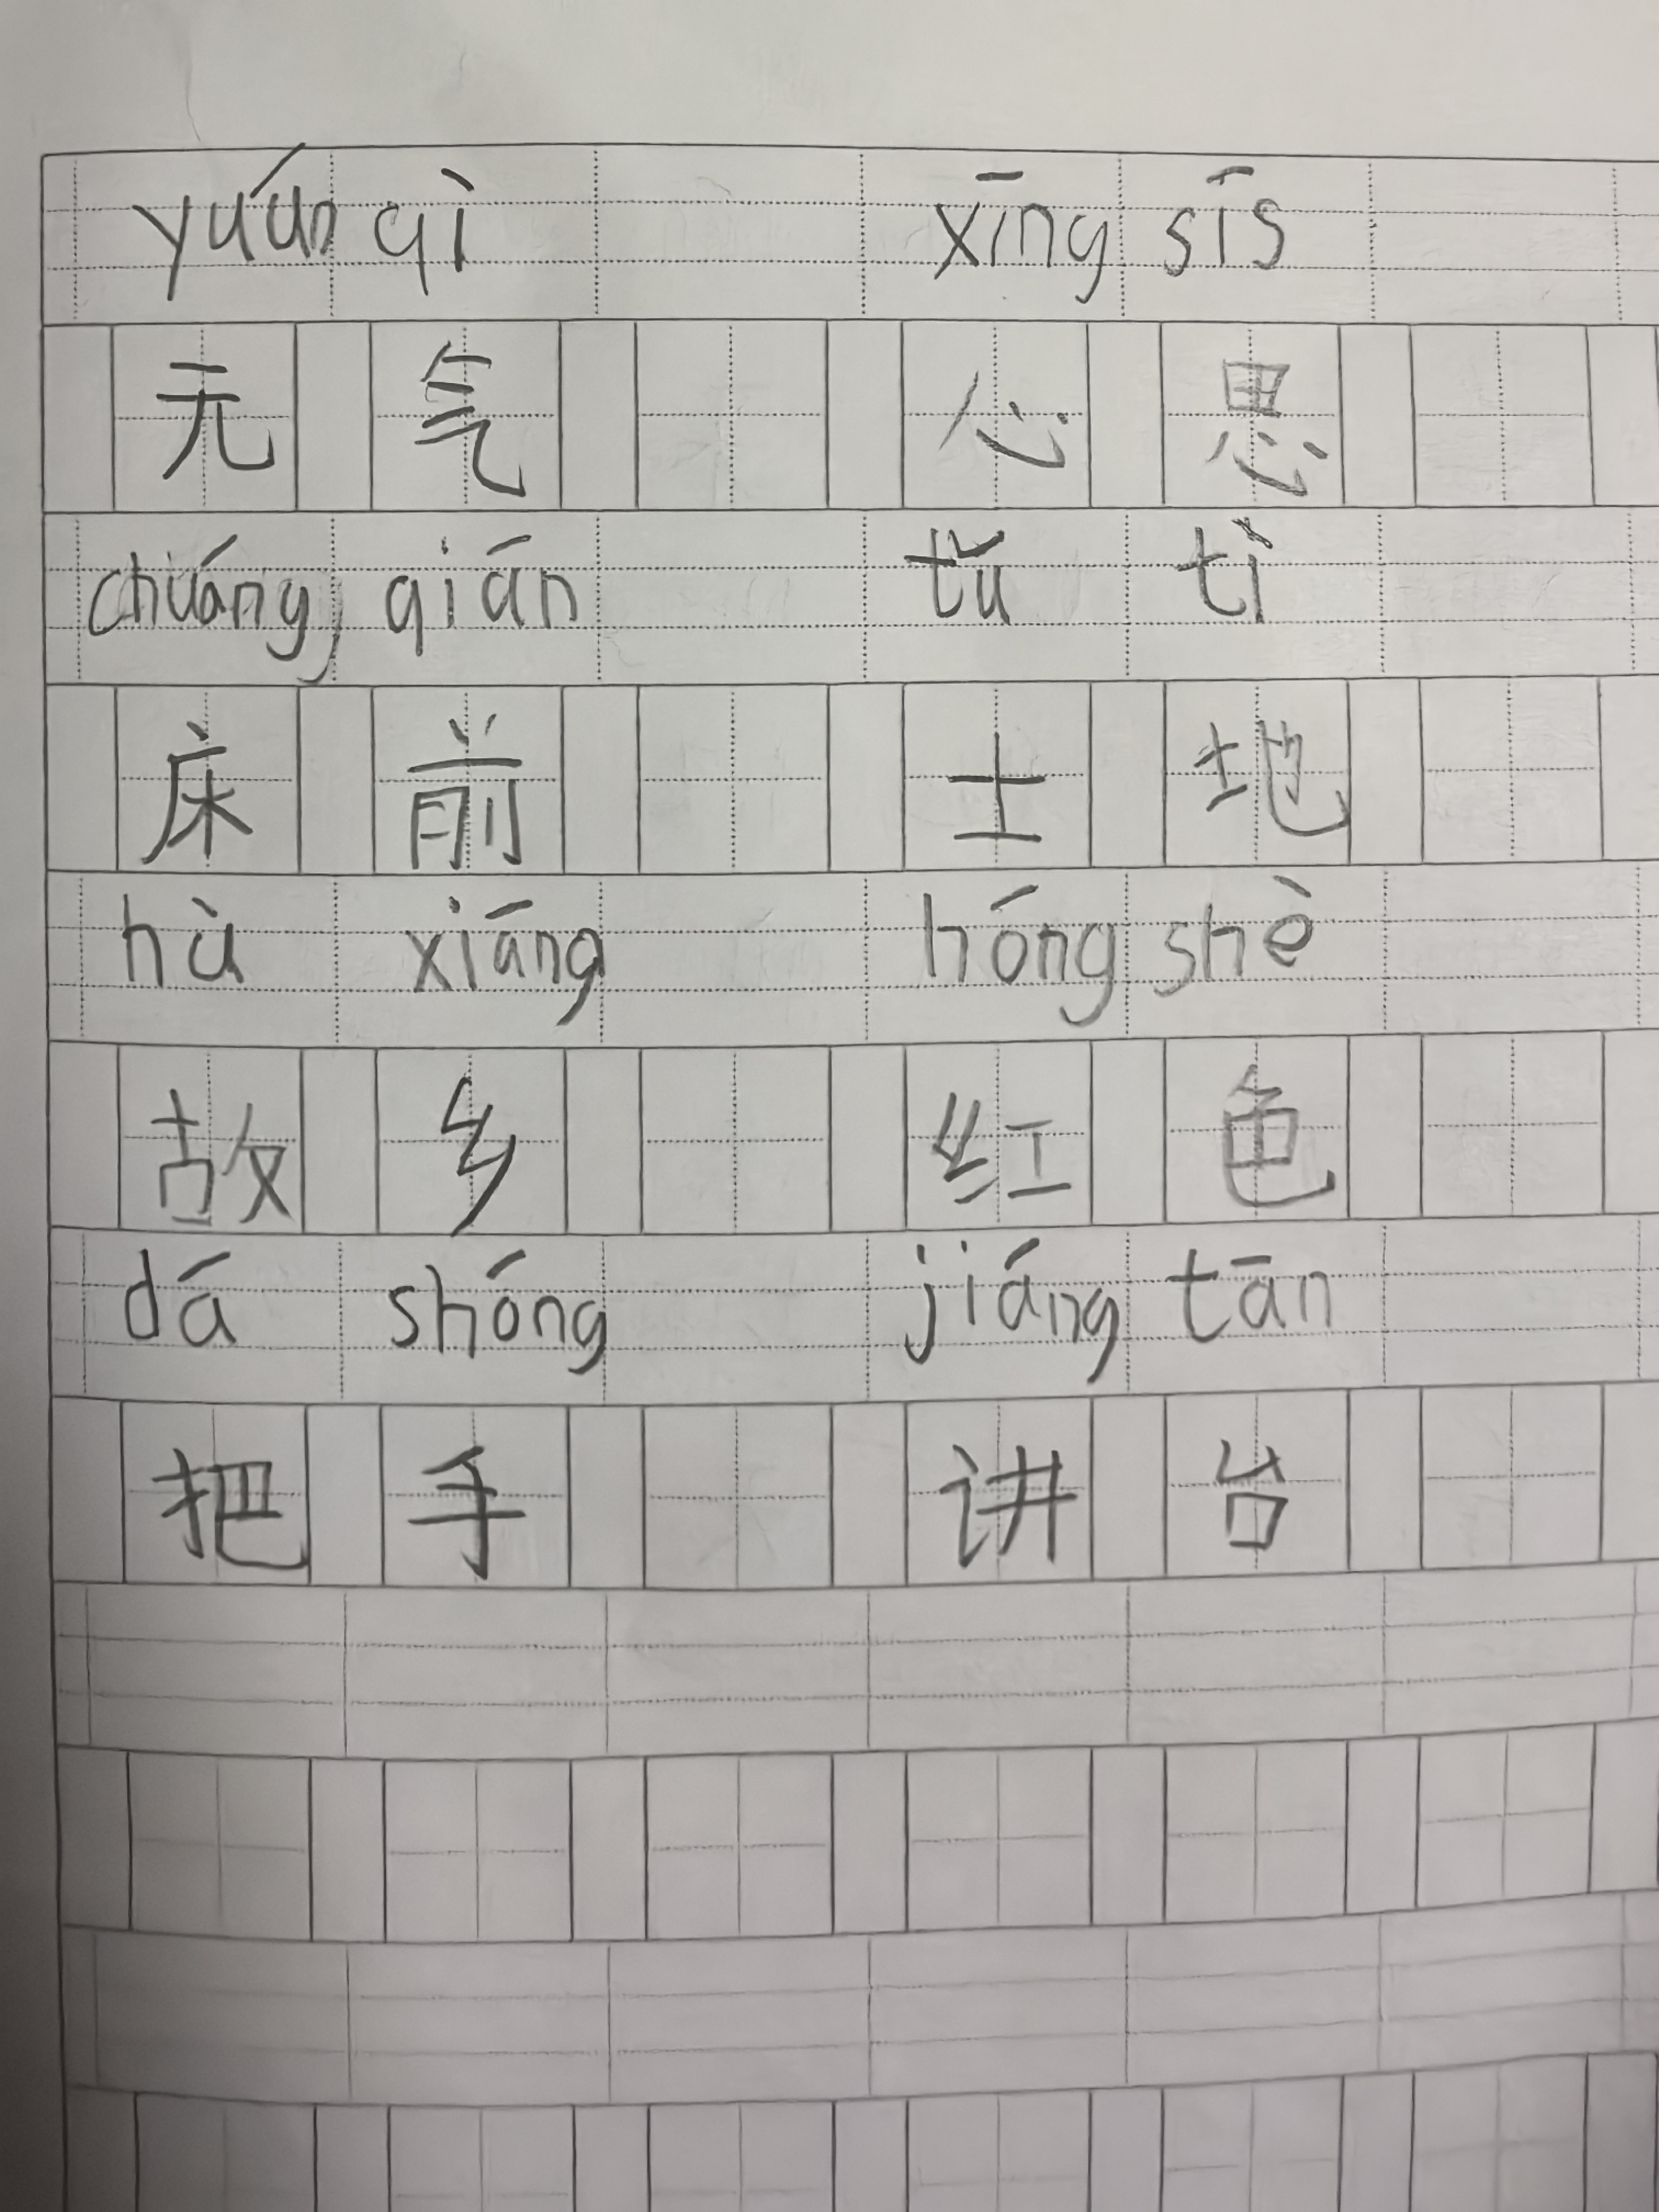 yuán qì xīng sīs
元气 心思
chuáng qián tǔ tì
床前 土地
hù xiáng hóng shè
故乡 红色
dá shóng jiáng tān
把手 讲台